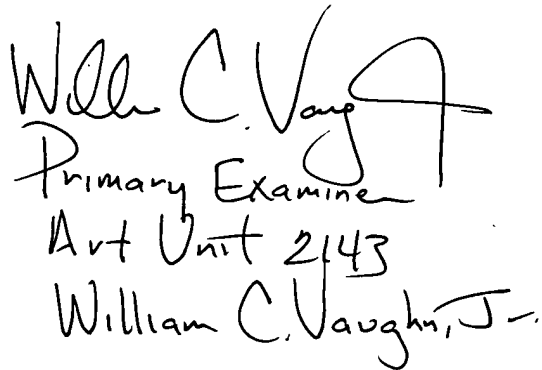 William C. Vaughn
Primary Examiner
Art Unit 2143
William C. Vaughn, Jr.